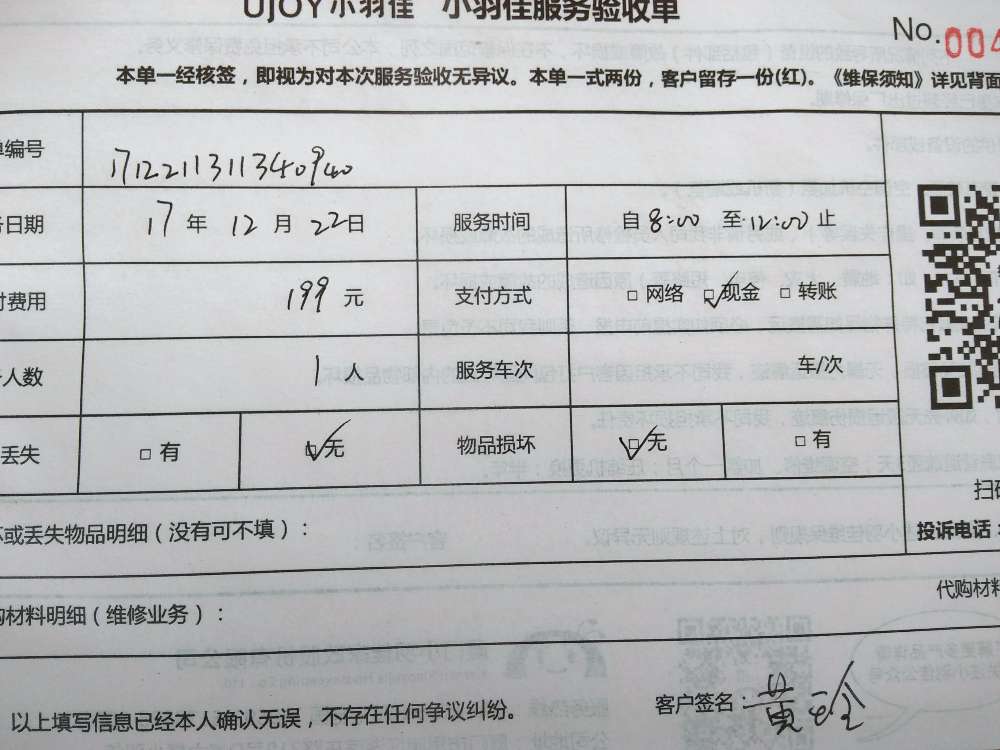 UJOY小羽佳 小羽佳服务验收单
No.004
本单一经核签，即视为对本次服务验收无异议。本单一式两份，客户留存一份(红)。《维保须知》详见背面
单编号 1712211311340940
务日期 17 年 12 月 22日 服务时间 自 8:00 至 12:00 止
付费用 199 元 支付方式 □ 网络 ☑ 现金 □ 转账
人数 1 人 服务车次 车/次
丢失 □ 有 ☑ 无 物品损坏 ☑ 无 □ 有
扫码
坏或丢失物品明细（没有可不填）：
投诉电话：
购材料明细（维修业务）：
代购材料
以上填写信息已经本人确认无误，不存在任何争议纠纷。
客户签名：黄